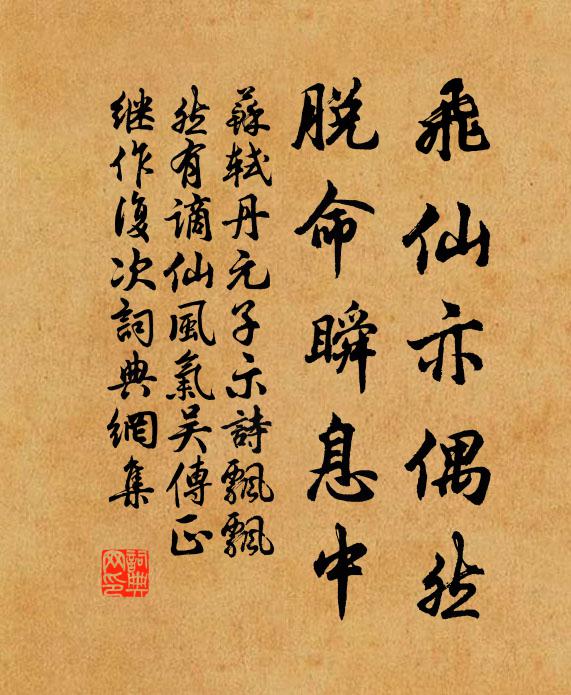 飛仙亦偶然
脫命瞬息中
蘇軾丹元子示詩飄飄
然有謫仙風氣吳傳正
继作復次詞典網集
詞典网印